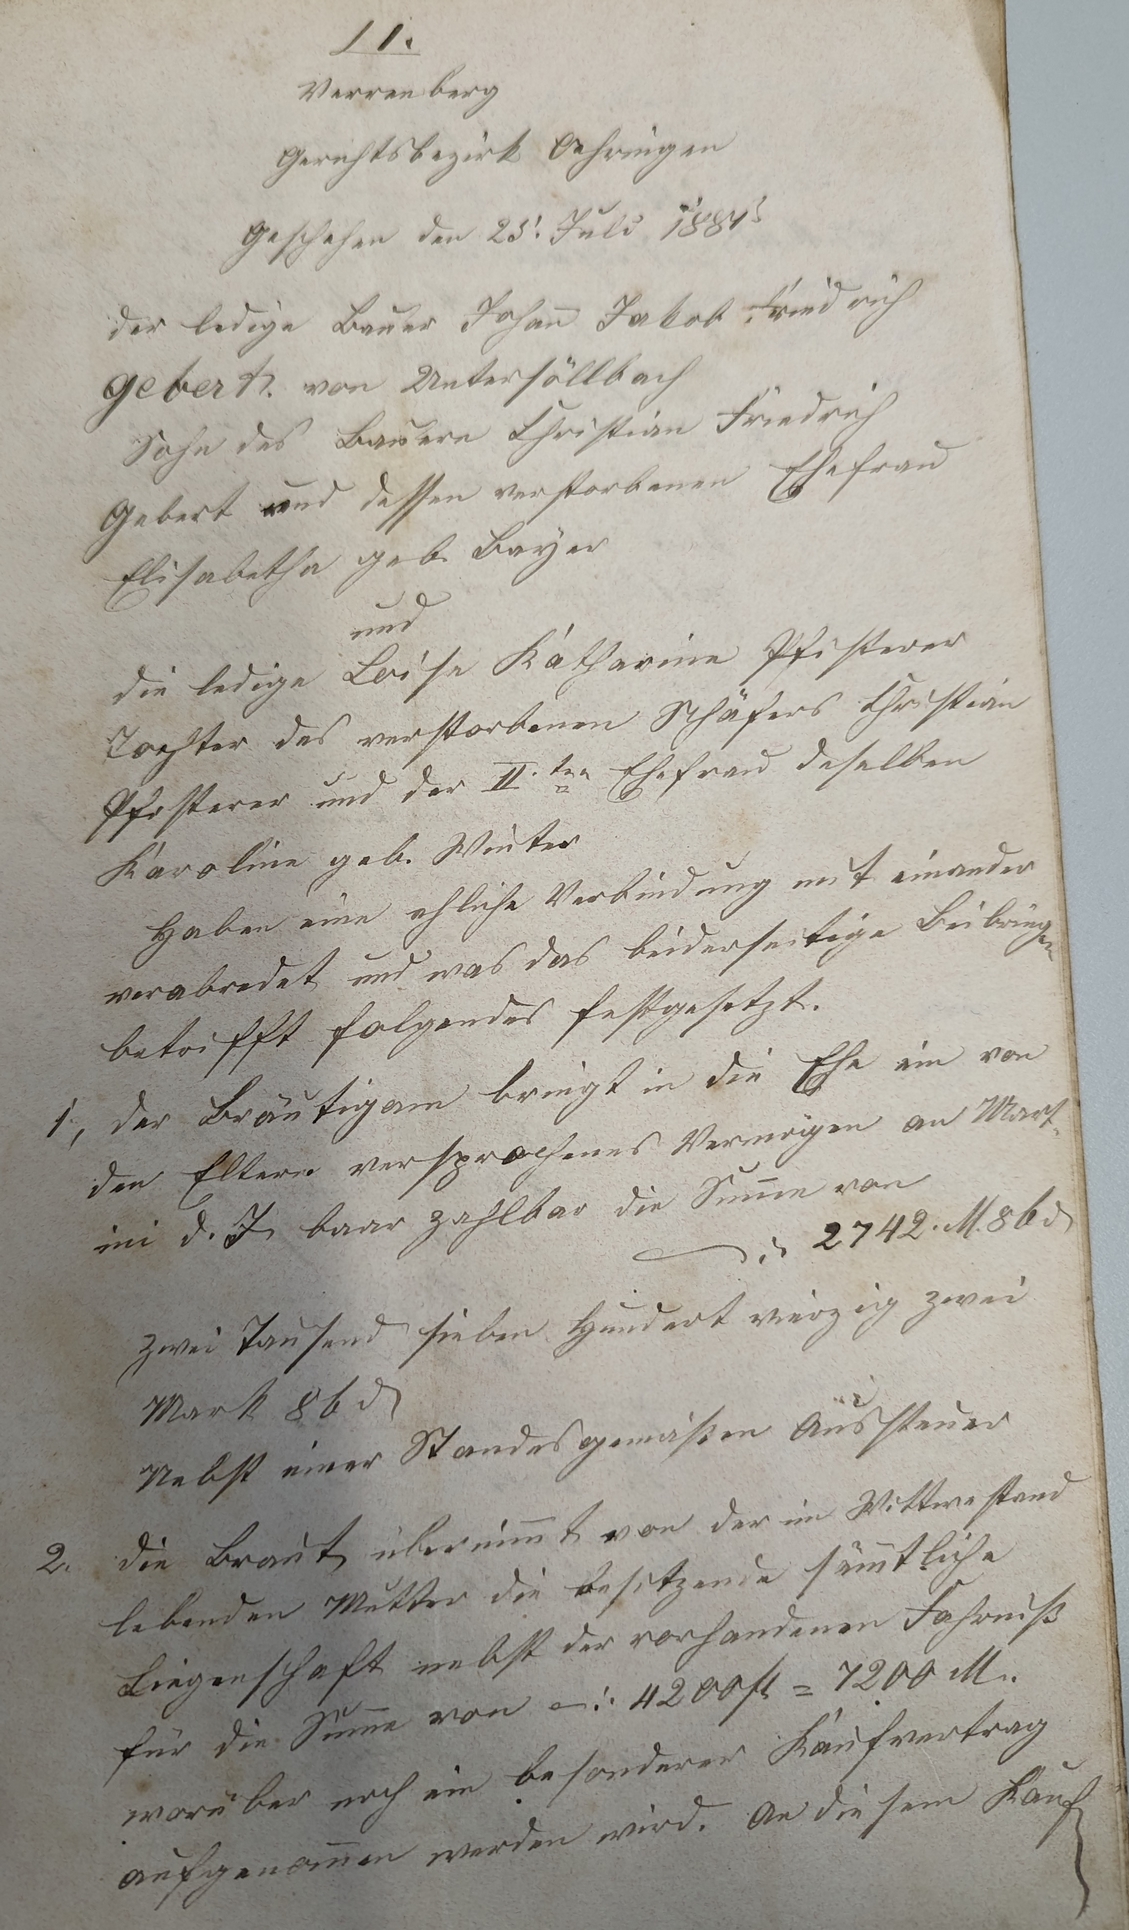 11.
Verrenberg
Gerichtsbezirk Oehringen
Geschehen den 25. Juli 1881
der ledige Bauer Johañ Jakob Friedrich
Gebert. von Untersöllbach
Sohn des Bauern Christian Friedrich
Gebert und dessen verstorbenen Ehefrau
Elisabetha geb. Bayer
und
die ledige Loise Katharine Pfisterer
Tochter des verstorbenen Schäfers Christian
Pfisterer und der II.ten Ehefrau deselben
Karoline geb. Winter
Haben eine ehliche Verbindung mit einander
verabredet und was das beiderseitige Beibringen
betrifft folgendes festgesetzt.
1, der Bräutigam bringt in die Ehe ein von
den Eltern versprochenes Vermögen an Mart-
ini d. J. baar zahlbar die Sum̄e von
2742. M. 86 d
zwei Tausend sieben Hundert vierzig zwei
Mark 86 d
Nebst einer Standesgemäßen Aussteuer
2. die Braut übernim̄t von der im Wittwestand
lebenden Mutter die besitzende säm̄tliche
Liegenschaft nebst der vorhandenen Fahrniß
für die Sum̄e von –: 4200 fl = 7200 M.
worüber noch ein besonderer Kaufvertrag
aufgenom̄en werden wird. An diesem Kauf